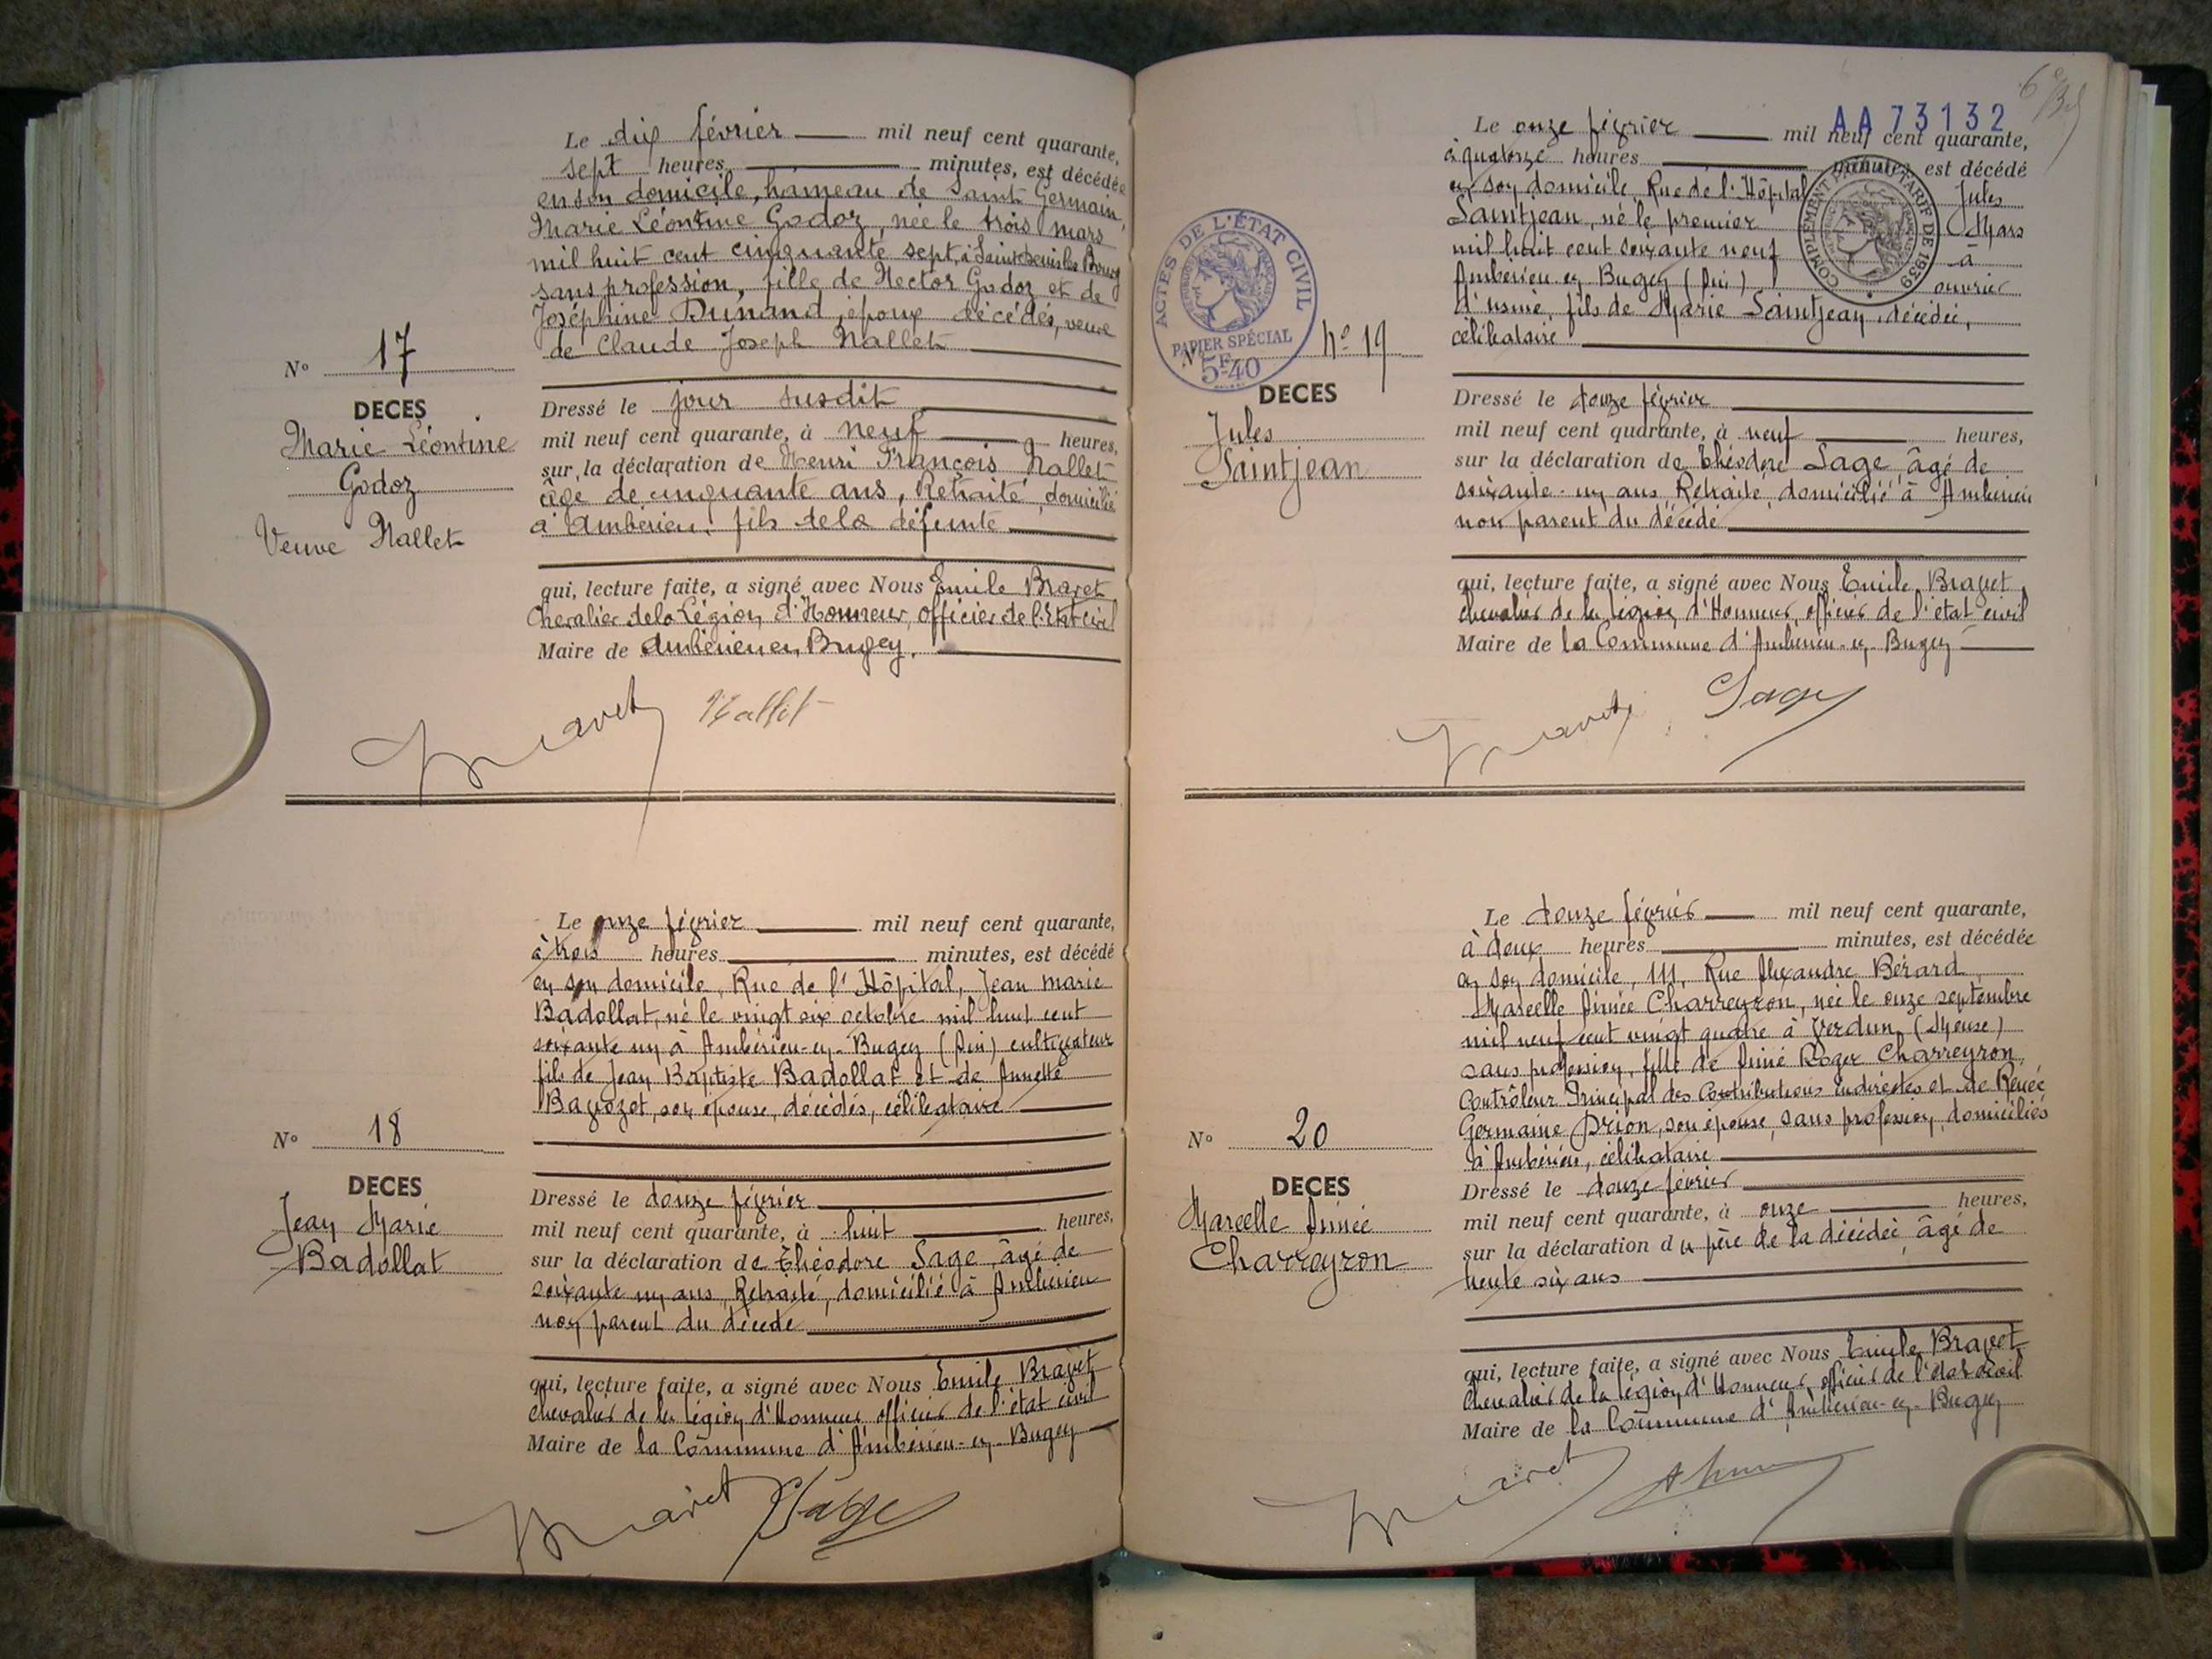 Le dix février mil neuf cent quarante,
sept heures minutes, est décédée
en son domicile, hameau de Saint Germain,
Marie Léontine Godoz, née le trois mars
mil huit cent cinquante sept, à Saint Denis les Bourg
sans profession, fille de Hector Godoz et de
Joséphine Dunand, époux décédés, veuve
de Claude Joseph Nallet
N° 17
DECES
Marie Léontine
Godoz
Veuve Nallet
Dressé le jour susdit
mil neuf cent quarante, à neuf heures,
sur la déclaration de Henri François Nallet
âgé de cinquante ans, Retraité, domicilié
à Ambérieu, fils de la défunte
qui, lecture faite, a signé avec Nous Emile Bravet
Chevalier de la Légion d'Honneur, Officier de l'Etat Civil
Maire de Ambérieu en Bugey.
Bravet Nallet
Le onze février mil neuf cent quarante,
à trois heures minutes, est décédé
en son domicile, Rue de l'Hôpital, Jean Marie
Badollat, né le vingt six octobre mil huit cent
soixante un à Ambérieu-en-Bugey (Ain) cultivateur
fils de Jean Baptiste Badollat et de Annette
Bavozet, son épouse, décédés, célibataire
N° 18
DECES
Jean Marie
Badollat
Dressé le douze février
mil neuf cent quarante, à huit heures,
sur la déclaration de Théodore Sage, âgé de
soixante un ans, Retraité, domicilié à Ambérieu
non parent du décédé
qui, lecture faite, a signé avec Nous Emile Bravet
chevalier de la légion d'Honneur, officier de l'état civil
Maire de la Commune d'Ambérieu-en-Bugey
Bravet Sage
AA73132
Le onze février mil neuf cent quarante,
à quatorze heures minutes est décédé
en son domicile, Rue de l'Hôpital Jules
Saintjean, né le premier Mars
mil huit cent soixante neuf à
Ambérieu en Bugey (Ain) ouvrier
d'usine, fils de Marie Saintjean, décédée,
célibataire
COMPLEMENT TARIF DE 1939
ACTES DE L'ÉTAT CIVIL
PAPIER SPÉCIAL
5F40
N° n° 19
DECES
Jules
Saintjean
Dressé le douze février
mil neuf cent quarante, à neuf heures,
sur la déclaration de Théodore Sage, âgé de
soixante-un ans, Retraité, domicilié à Ambérieu
non parent du décédé
qui, lecture faite, a signé avec Nous Emile Bravet
chevalier de la légion d'Honneur, officier de l'état civil
Maire de la Commune d'Ambérieu-en-Bugey
Bravet Sage
Le douze février mil neuf cent quarante,
à deux heures minutes, est décédée
en son domicile, 111, Rue Alexandre Bérard
Marcelle Aimée Charreyron, née le onze septembre
mil neuf cent vingt quatre à Verdun (Meuse)
sans profession, fille de Aimé Roger Charreyron,
Contrôleur Principal des Contributions Indirectes et de Renée
Germaine Drion, son épouse, sans profession, domiciliés
à Ambérieu, célibataire
N° 20
DECES
Marcelle Aimée
Charreyron
Dressé le douze février
mil neuf cent quarante, à onze heures,
sur la déclaration du père de la décédée, âgé de
trente six ans
qui, lecture faite, a signé avec Nous Emile Bravet
chevalier de la légion d'Honneur, officier de l'état civil
Maire de la Commune d'Ambérieu-en-Bugey
Bravet